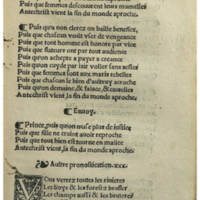 Puis que femmes descouurent leurs mamelles
Antechrist vient la fin du monde aproche.
Puis quon nen clercz on baille benefice,
Puis que chascun veult vser de vengance
Puis que tout homme est honore par vice
Puis que aux bons
Puis quon achepte a payer a creance
Puis quon cuyde par air voller sens aesles
Puis que femmes sont aux maris rebelles
Puis que chascun le bien dautruy acroche
Puis quon demaine, & falace, & cautelles
Antechrist vient, la fin du monde aproche.
¶ Enuoy.
Prince, puis quon nuse plus de iustice
Puis que fille ne craint auoir reproche
Puis que tout bien est tourne en malice
Antechrist vient, la fin du monde aproche.
Autre pronostication. xxx.
Vous verrez toutes les riuieres
Les boys & les forestz
Les champs aussi & les bruieres